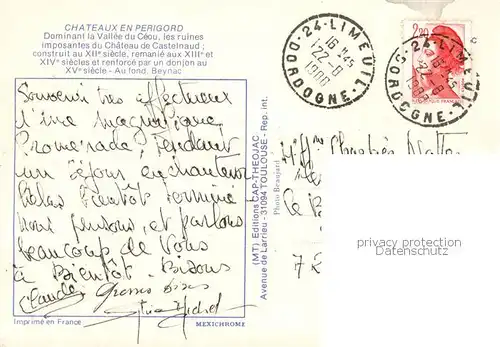 CHATEAUX EN PERIGORD
Dominant la Vallée du Céou, les ruines
imposantes du Château de Castelnaud ;
construit au XIIe siècle, remanié aux XIIIe et
XIVe siècles et renforcé par un donjon au
XVe siècle - Au fond, Beynac
Souvenir très affectueux
d'une magnifique
Promenade, Pendant
un séjour enchanteur
hélas bientôt terminé
nous pensons et parlons
beaucoup de Vous
à Bientôt. Bisous
Claude Grosses bises
Michel
Imprimé en France
MEXICHROME
(MT) Editions CAP-THEOJAC
Avenue de Larrieu - 31094 TOULOUSE - Rep. int.
Photo Beaujard
24-LIMEUIL
18 H.45
DORDOGNE
2,20
24-LIMEUIL
DORDOGNE
privacy protection
Datenschutz